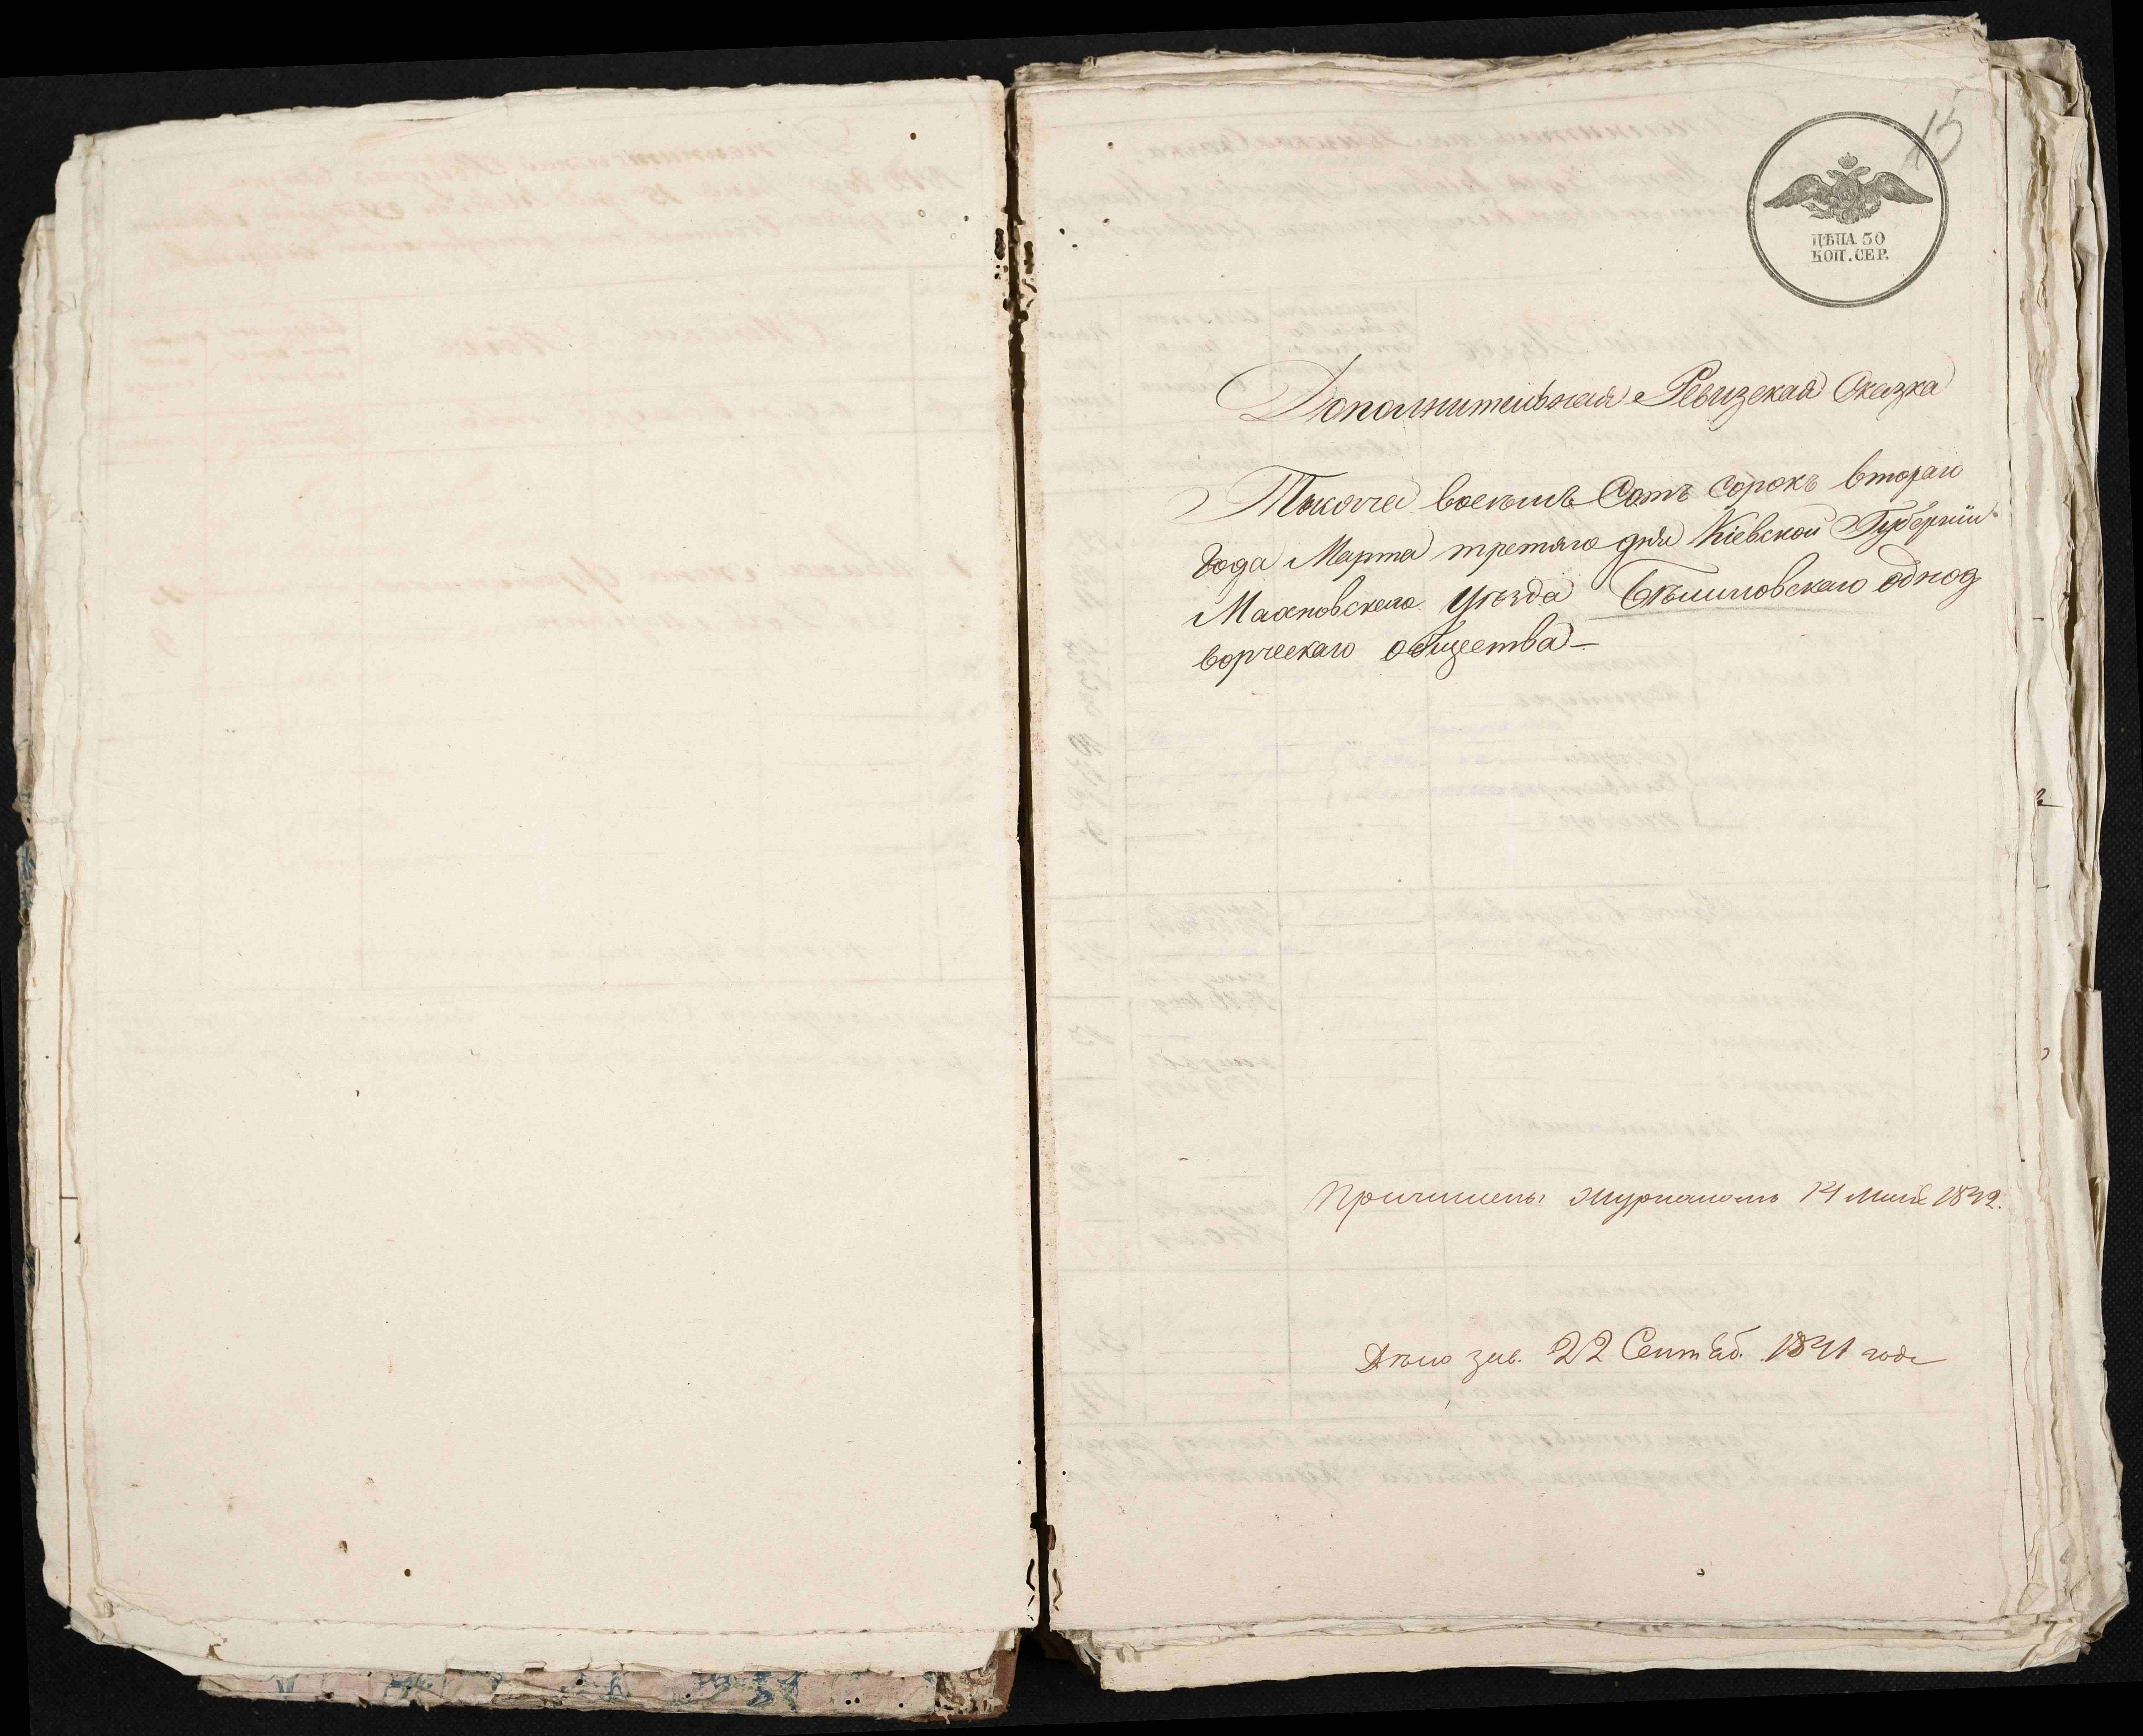 15
ЦѢНА 30
КОП. СЕР.
Дополнительная Ревизская Сказка
Тысяча восемь Сотъ сорокъ втораго
Года Марта третяго дня Кіевской Губерніи
Махновскаго Уѣзда Бѣлиловскаго однод
ворческаго общества —
Причислены журналомъ 14 Мая 1842.
Дѣло зав. 22 Сентяб. 1841 года